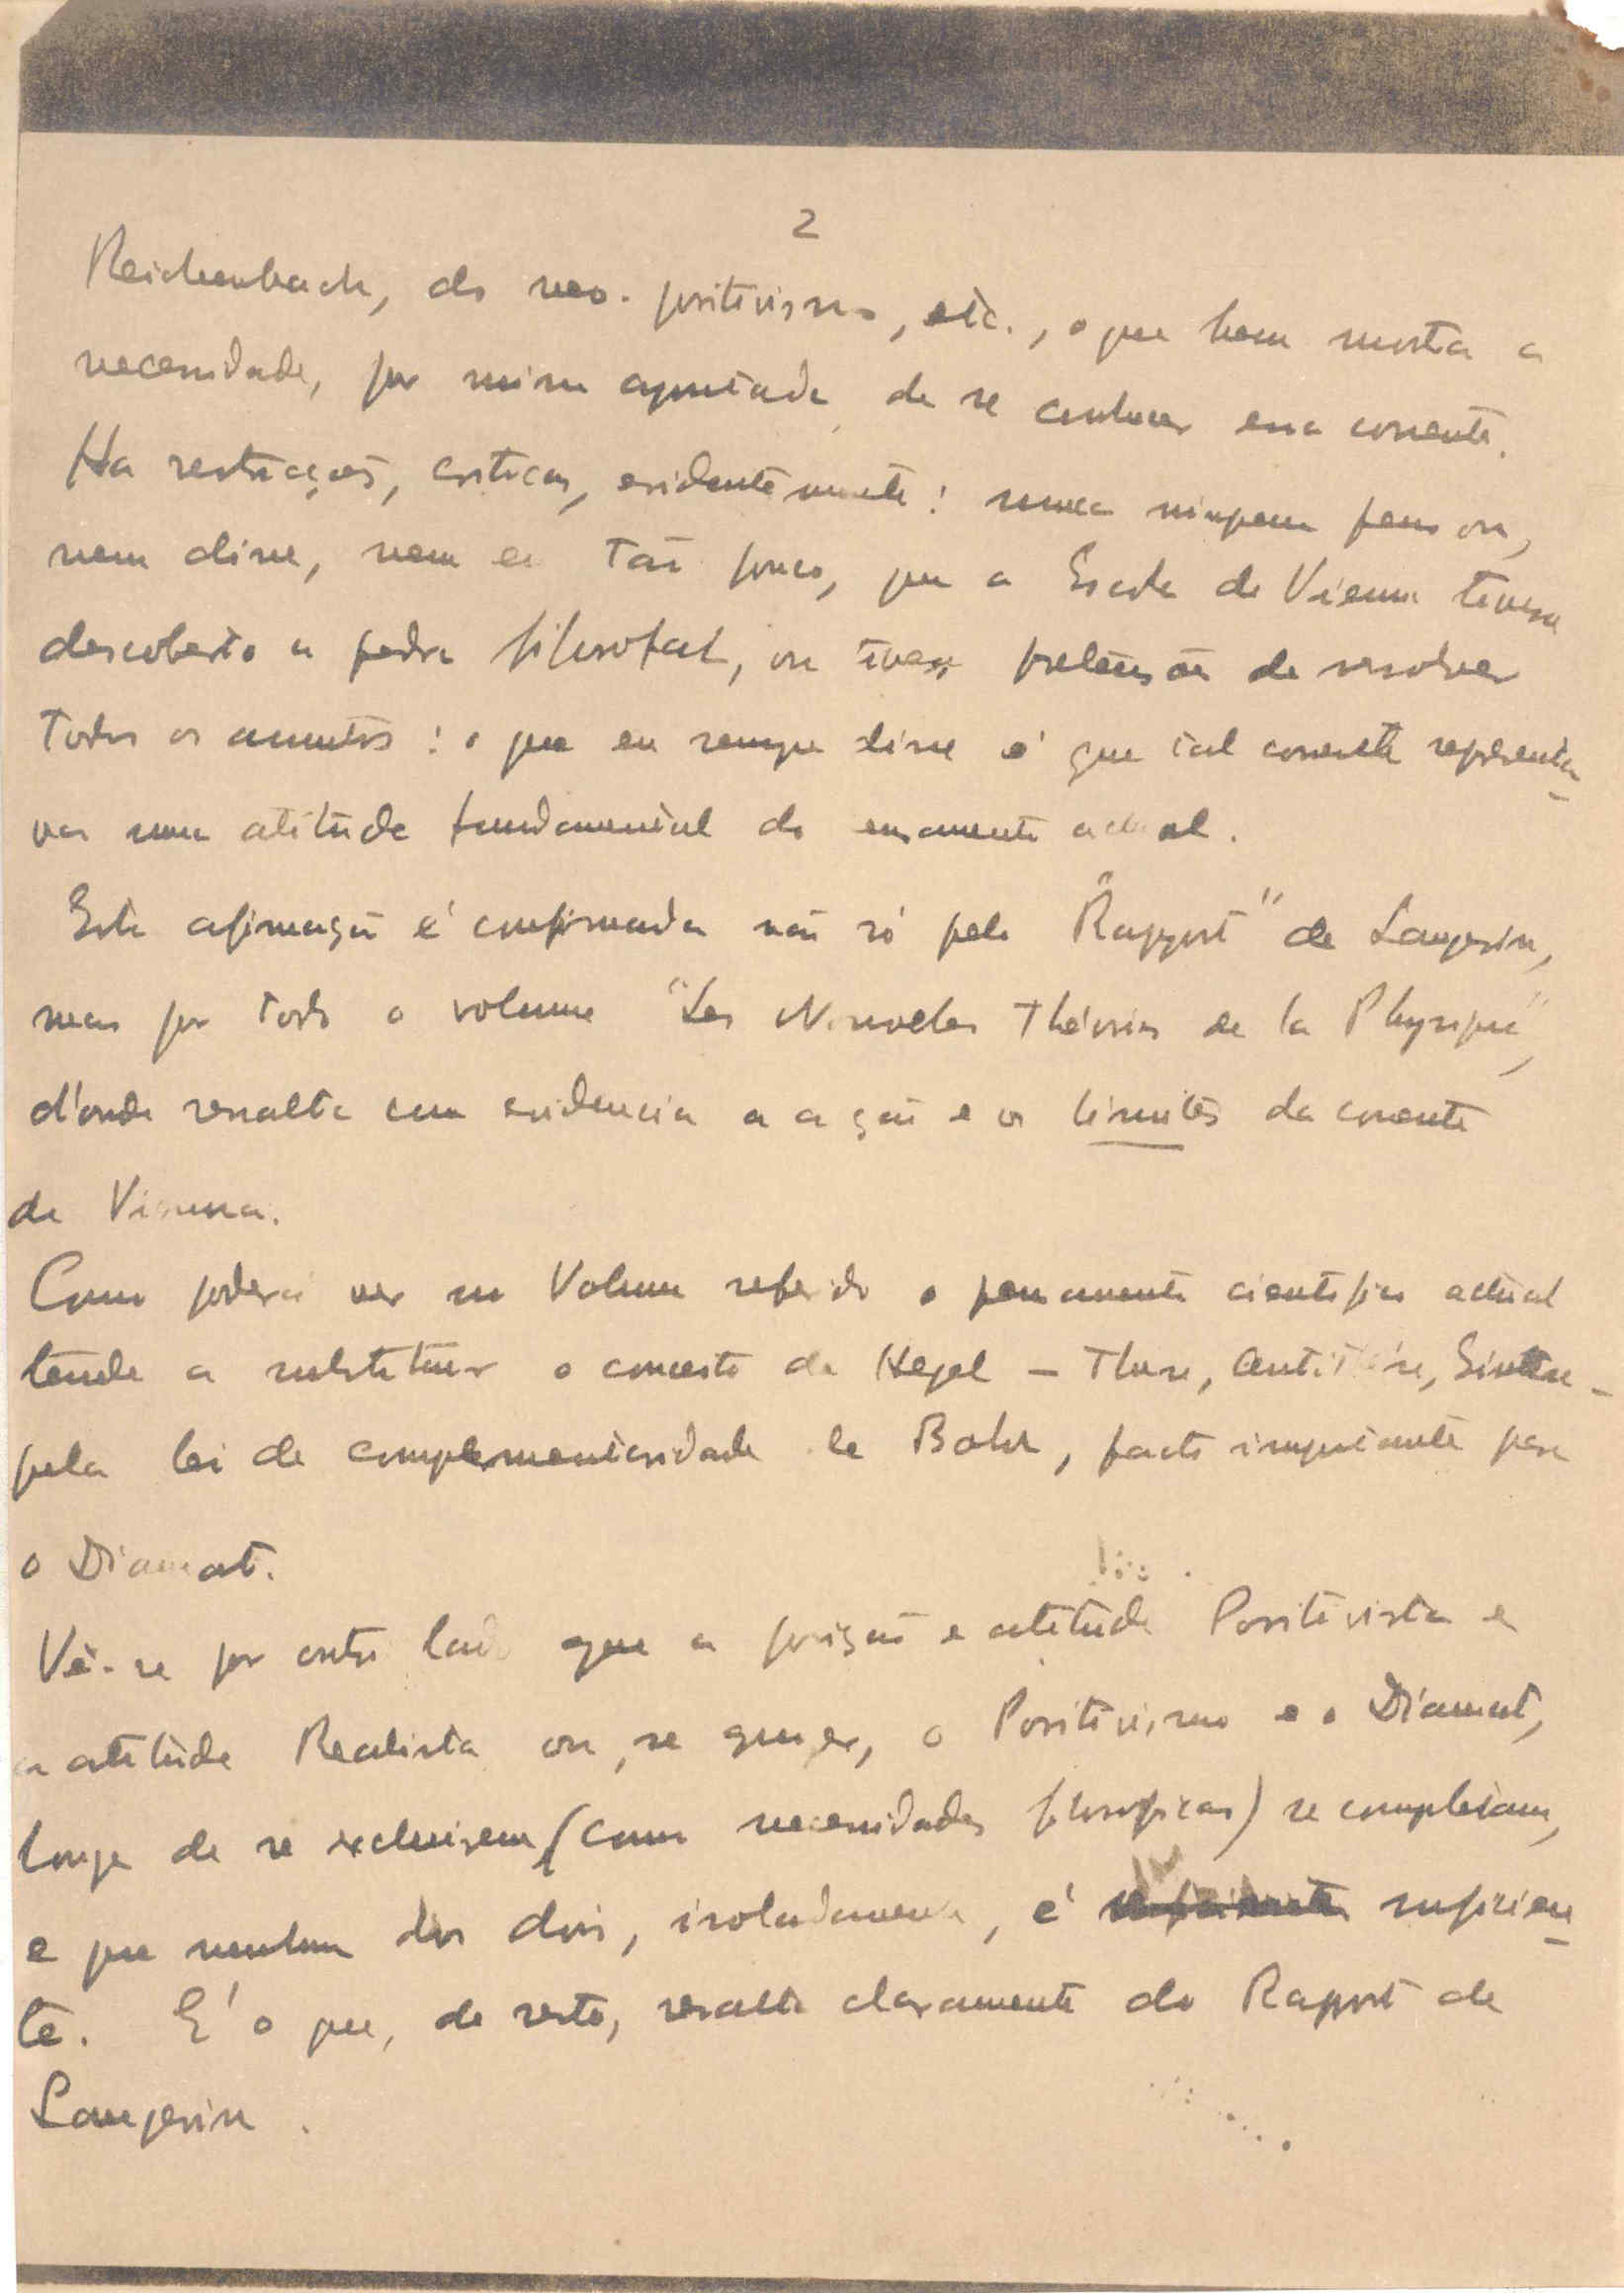 2
Reichenbach, do neo-positivismo, etc., o que bem mostra a
necessidade, por mim apontada, de se conhecer essa corrente.
Ha restricções, criticas, evidentemente: nunca ninguem pensou,
nem disse, nem eu tão pouco, que a Escola de Vienna tivesse
descoberto a pedra filosofal, ou tivesse pretensão de resolver
todos os assuntos: o que eu sempre disse é que tal corrente representa-
va uma atitude fundamental do ensamento actual.
Esta afirmação é confirmada não só pelo "Rapport" de Langevin,
mas por todo o volume "Les Nouvelles Théories de la Physique",
d'onde resalta com evidencia a acção e os limites da corrente
de Vienna.
Como poderá ver no Volume referido o pensamento cientifico actual
tende a substituir o conceito de Hegel – These, Antithése, Sintese –
pela lei de complementaridade de Bohr, facto importante para
o Diamat.
Vê-se por outro lado que a posição e atitude Positivista e
a atitude Realista ou, se quizer, o Positivismo e o Diamat,
longe de se excluirem (como necessidades filosoficas) se completam,
e que nenhum dos dois, isoladamente, é suficien-
te. E' o que, de resto, resalta claramente do Rapport de
Langevin.